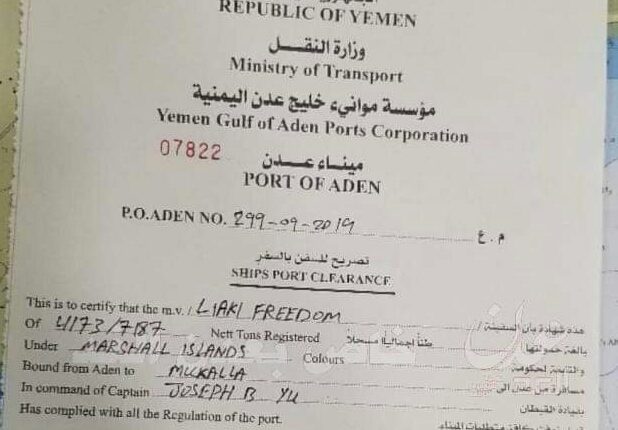 REPUBLIC OF YEMEN
وزارة النقل
Ministry of Transport
مؤسسة موانيء خليج عدن اليمنية
Yemen Gulf of Aden Ports Corporation
07822
ميناء عدن
PORT OF ADEN
P.O.ADEN NO. 299-09-2019 م.ع
تصريح للسفن بالسفر
SHIPS PORT CLEARANCE
This is to certify that the m.v. / LIAKI FREEDOM هذه شهادة بأن السفينة /
Of 4173/7187 Nett Tons Registered طناً اجمالياً مسجلاً بالغة حمولتها /
Under MARSHALL ISLANDS Colours والتابعة لحكومة
Bound from Aden to MUKALLA مسافرة من عدن الى
In command of Captain JOSEPH B YU بقيادة القبطان
Has complied with all the Regulation of the port.